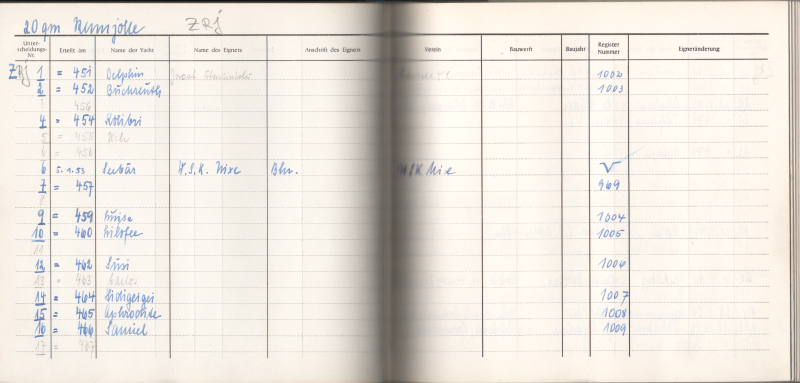 20 qm Rennjolle ZRj
Unter-scheidungs-Nr. Erteilt am Name der Yacht Name des Eigners Anschrift des Eigners Verein Bauwerft Baujahr Register Nummer Eigneränderung
ZRj 1 = 451 Delphin 1002
2 = 452 Buchreuth 1003
456
4 = 454 Kolibri
5 = 455
6 = 456
6 5.1.53 Seebär W.S.K. Nixe Bln. WSK Nixe √
7 = 457 969
9 = 459 1004
10 = 460 1005
11
12 = 462 Susi 1006
13 = 463
14 = 464 Hidigeigei 1007
15 = 465 Aphrodite 1008
16 = 466 Samiel 1009
17 = 467